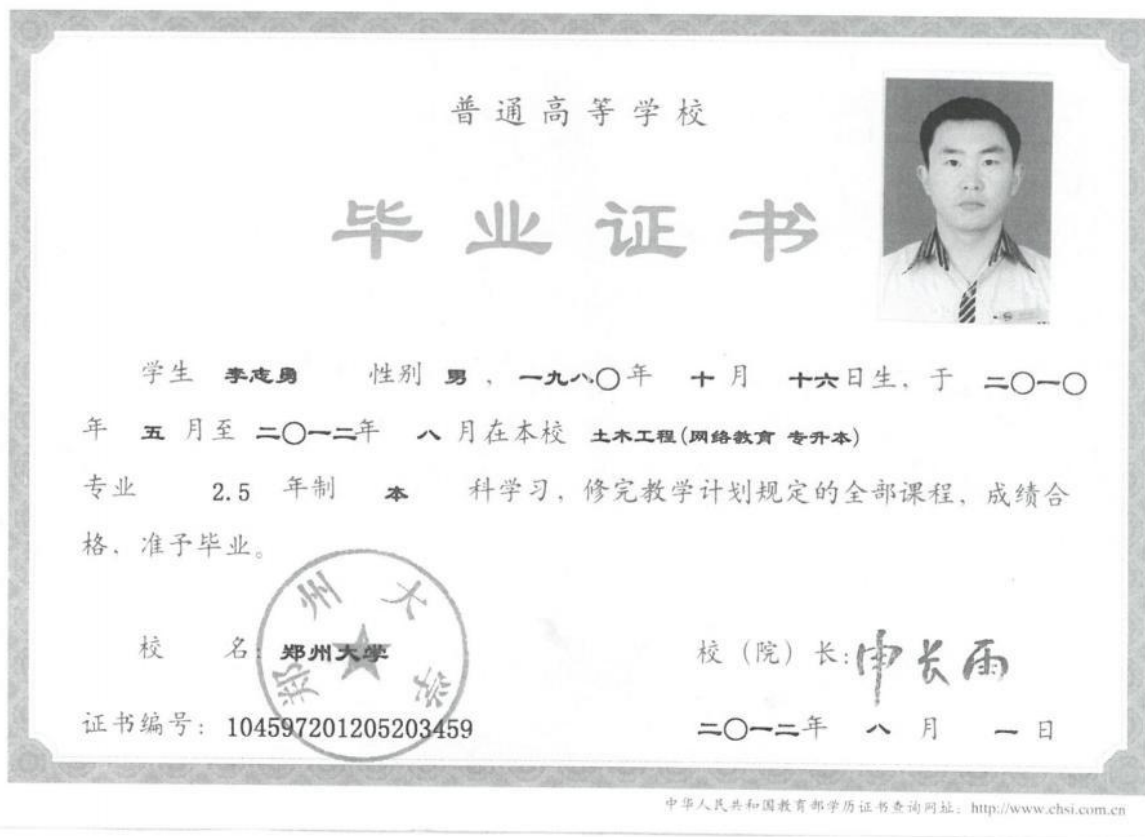 普通高等学校
毕业证书
学生 李志勇 性别 男，一九八〇年 十月 十六日生，于 二〇一〇
年 五 月至 二〇一二年 八 月在本校 土木工程(网络教育 专升本)
专业 2.5 年制 本 科学习，修完教学计划规定的全部课程，成绩合
格，准予毕业。
郑州大学
校 名：郑州大学 校（院）长：申长雨
证书编号：104597201205203459 二〇一二年 八 月 一 日
中华人民共和国教育部学历证书查询网址：http://www.chsi.com.cn